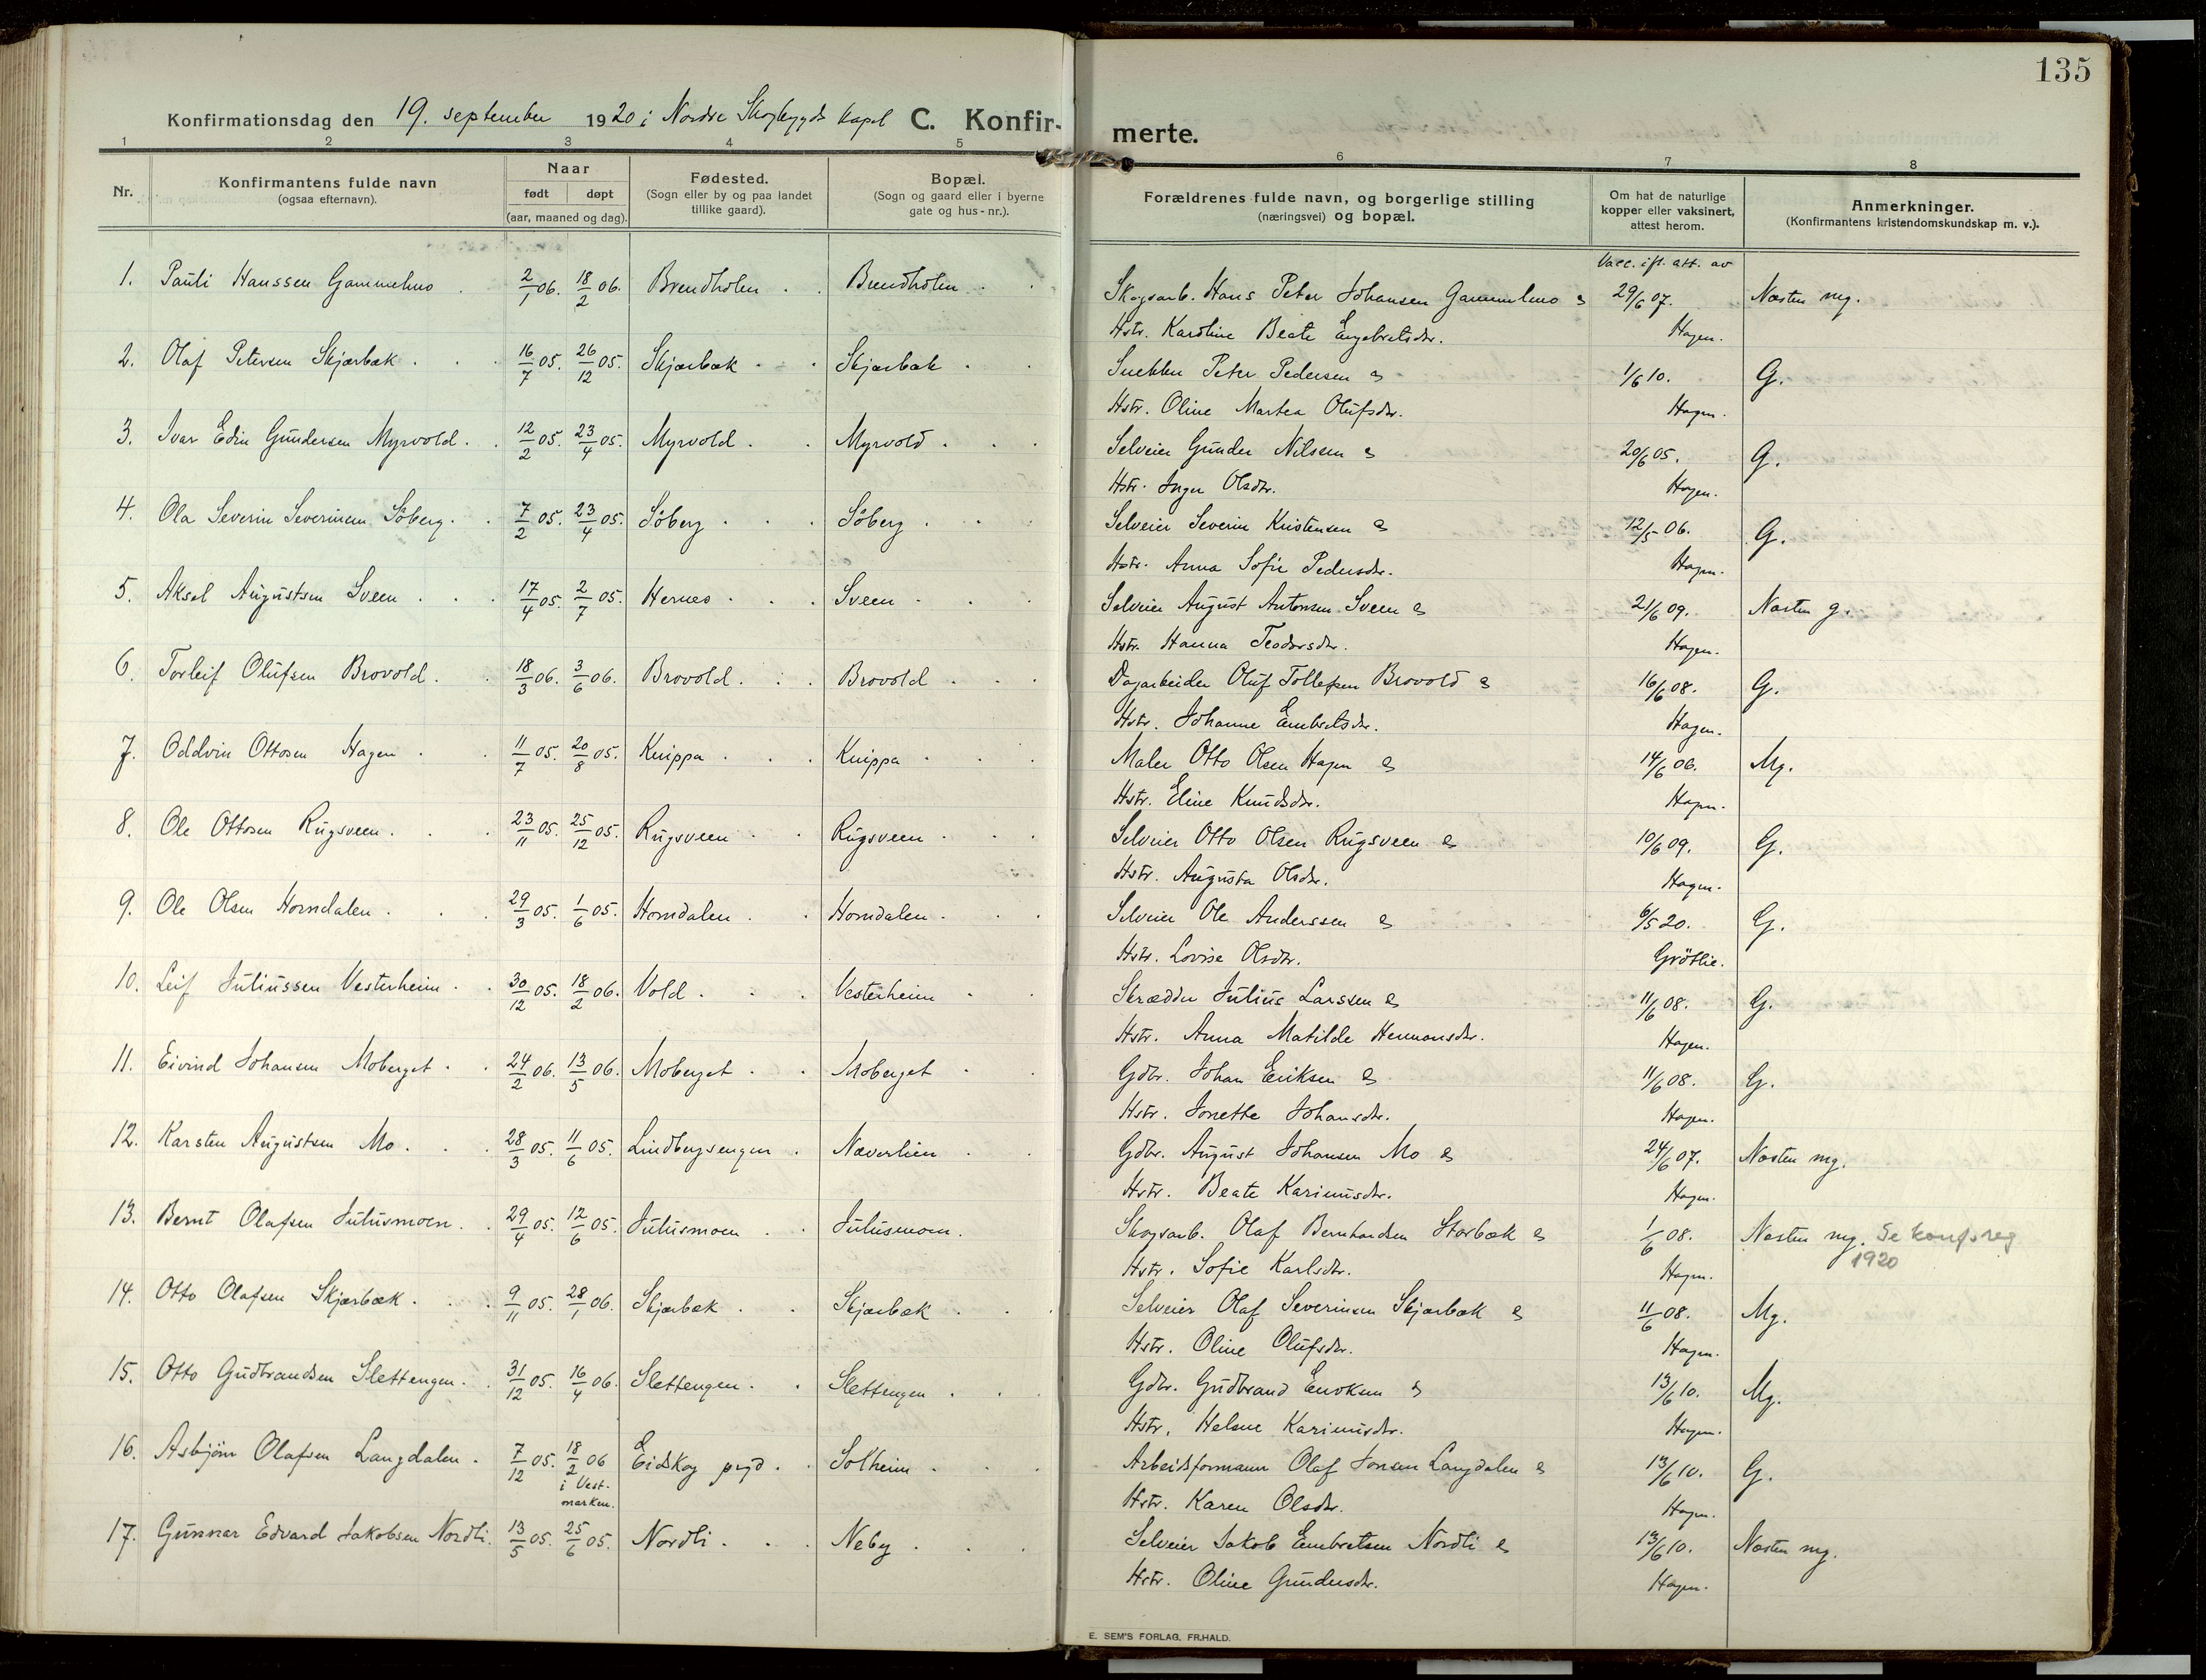 135
Konfirmationsdag den 19. september 1920 i Nordre Skogbygds kapel C. Konfir-
merte.
1 2 3 4 5 6 7 8
Nr. Konfirmantens fulde navn (ogsaa efternavn). Naar født døpt (aar, maaned og dag). Fødested. (Sogn eller by og paa landet tillike gaard). Bopæl. (Sogn og gaard eller i byerne gate og hus-nr.). Forældrenes fulde navn, og borgerlige stilling (næringsvei) og bopæl. Om hat de naturlige kopper eller vaksinert, attest herom. Anmerkninger. (Konfirmantens kristendomskundskap m. v.).
Vacc. ifl. att. av
1. Pauli Hanssen Gammelmo 2/1 06. 18/2 06. Brendholen Brendholen Skogsarb. Hans Peter Johansen Gammelmo & 29/6 07. Næsten mg.
Hstr. Karoline Beate Engebretsdtr. Hagen.
2. Olaf Petersen Skjærbæk 16/7 05. 26/12 05. Skjærbæk Skjærbæk Snekker Peter Pedersen & 1/6 10. G.
Hstr. Oline Martea Olüfsdtr. Hagen.
3. Ivar Edin Gündersen Myrvold 12/2 05. 23/4 05. Myrvold Myrvold Selveier Günder Nilsen & 20/6 05. G.
Hstr. Inger Olsdtr. Hagen.
4. Ola Severin Severinsen Söberg 7/2 05. 23/4 05. Söberg Söberg Selveier Severin Kristensen & 12/5 06. G.
Hstr. Anna Sofie Pedersdtr. Hagen.
5. Aksel Augüstsen Sveen 17/4 05. 2/7 05. Hernes Sveen Selveier August Antonsen Sveen & 21/6 09. Næsten g.
Hstr. Hanna Teodorsdtr. Hagen.
6. Torleif Olüfsen Brovold 18/3 06. 3/6 06. Brovold Brovold Dagarbeider Olüf Tollefsen Brovold & 16/6 08. G.
Hstr. Johanne Embretsdtr. Hagen.
7. Oddvin Ottosen Hagen 11/7 05. 20/8 05. Knippa Knippa Maler Otto Olsen Hagen & 14/6 06. Mg.
Hstr. Eline Knüdsdtr. Hagen.
8. Ole Ottosen Rügsveen 23/11 05. 25/12 05. Rügsveen Rügsveen Selveier Otto Olsen Rügsveen & 10/6 09. G.
Hstr. Augüsta Olsdtr. Hagen.
9. Ole Olsen Horndalen 29/3 05. 1/6 05. Horndalen Horndalen Selveier Ole Anderssen & 6/5 20. G.
Hstr. Lovise Olsdtr. Grötlie.
10. Leif Jüliüssen Vesterheim 30/12 05. 18/2 06. Vold Vesterheim Skrædder Jüliüs Larssen & 11/6 08. G.
Hstr. Anna Matilde Hermansdtr. Hagen.
11. Eivind Johansen Moberget 24/2 06. 13/5 06. Moberget Moberget Gdbr. Johan Eriksen & 11/6 08. G.
Hstr. Jonette Johansdtr. Hagen.
12. Karsten Augüstsen Mo 28/3 05. 11/6 05. Lindbergsengen Næverlien Gdbr. Augüst Johansen Mo & 24/6 07. Næsten mg.
Hstr. Beate Karinüsdtr. Hagen.
13. Bernt Olafsen Jülüsmoen 29/4 05. 12/6 05. Jülüsmoen Jülüsmoen Skogsarb. Olaf Bernhardsen Storbæk & 1/6 08. Næsten mg. Se konf.reg
Hstr. Sofie Karlsdtr. Hagen. 1920
14. Otto Olafsen Skjærbæk 9/11 05. 28/1 06. Skjærbæk Skjærbæk Selveier Olaf Severinsen Skjærbæk & 11/6 08. Mg.
Hstr. Oline Olüfsdtr. Hagen.
15. Otto Güdbrandsen Slettengen 31/12 05. 16/4 06. Slettengen Slettengen Gdbr. Güdbrand Enoksen & 13/6 10. Mg.
Hstr. Helene Karinüsdtr. Hagen.
16. Asbjörn Olafsen Langdalen 7/12 05. 18/2 06 i Vestmarken. Eidskog prgd. Solheim Arbeidsformann Olaf Jonsen Langdalen & 13/6 10. G.
Hstr. Karen Olsdtr. Hagen.
17. Günnar Edvard Jakobsen Nordli 13/5 05. 25/6 05. Nordli Neby Selveier Jakob Embretsen Nordli & 13/6 10. Næsten mg.
Hstr. Oline Gündersdtr. Hagen.
E. SEM'S FORLAG, FR.HALD.